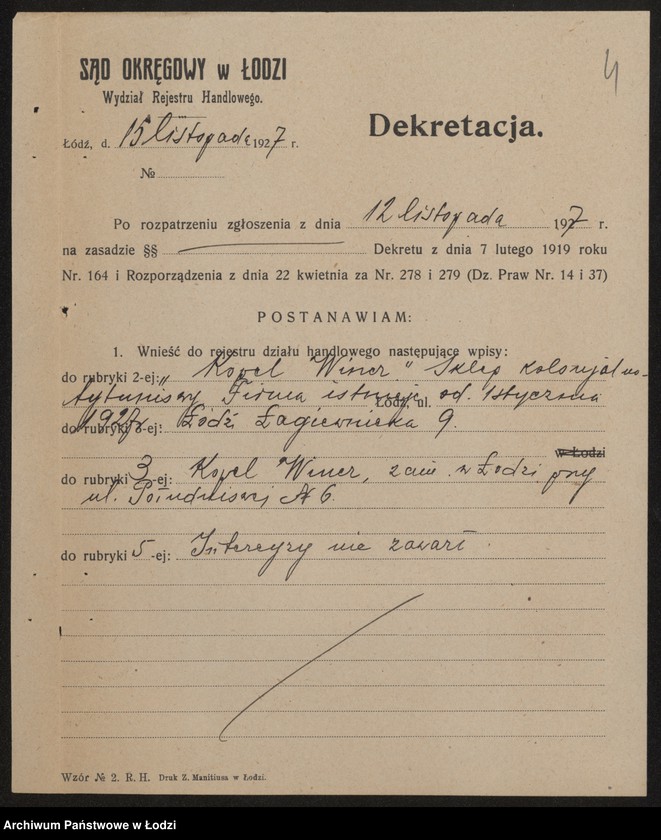 4
SĄD OKRĘGOWY w ŁODZI
Wydział Rejestru Handlowego.
Łódź, d. 15 listopada 1927 r.
Dekretacja.
№
Po rozpatrzeniu zgłoszenia z dnia 12 listopada 1927 r.
na zasadzie §§ Dekretu z dnia 7 lutego 1919 roku
Nr. 164 i Rozporządzenia z dnia 22 kwietnia za Nr. 278 i 279 (Dz. Praw Nr. 14 i 37)
POSTANAWIAM:
1. Wnieść do rejestru działu handlowego następujące wpisy:
do rubryki 2-ej: „Kopel Winer" Sklep kolonjalno-
tytuniowy Firma istnieje od 1 stycznia
Łódź, ul.
do rubryki 3-ej: 1927 r. Łódź Łagiewnicka 9.
w Łodzi
do rubryki 3-ej: Kopel Winer, zam. w Łodzi przy
ul. Południowej № 6.
do rubryki 5-ej: Intercyzy nie zawarł.
Wzór № 2. R. H. Druk Z. Manitiusa w Łodzi.
Archiwum Państwowe w Łodzi